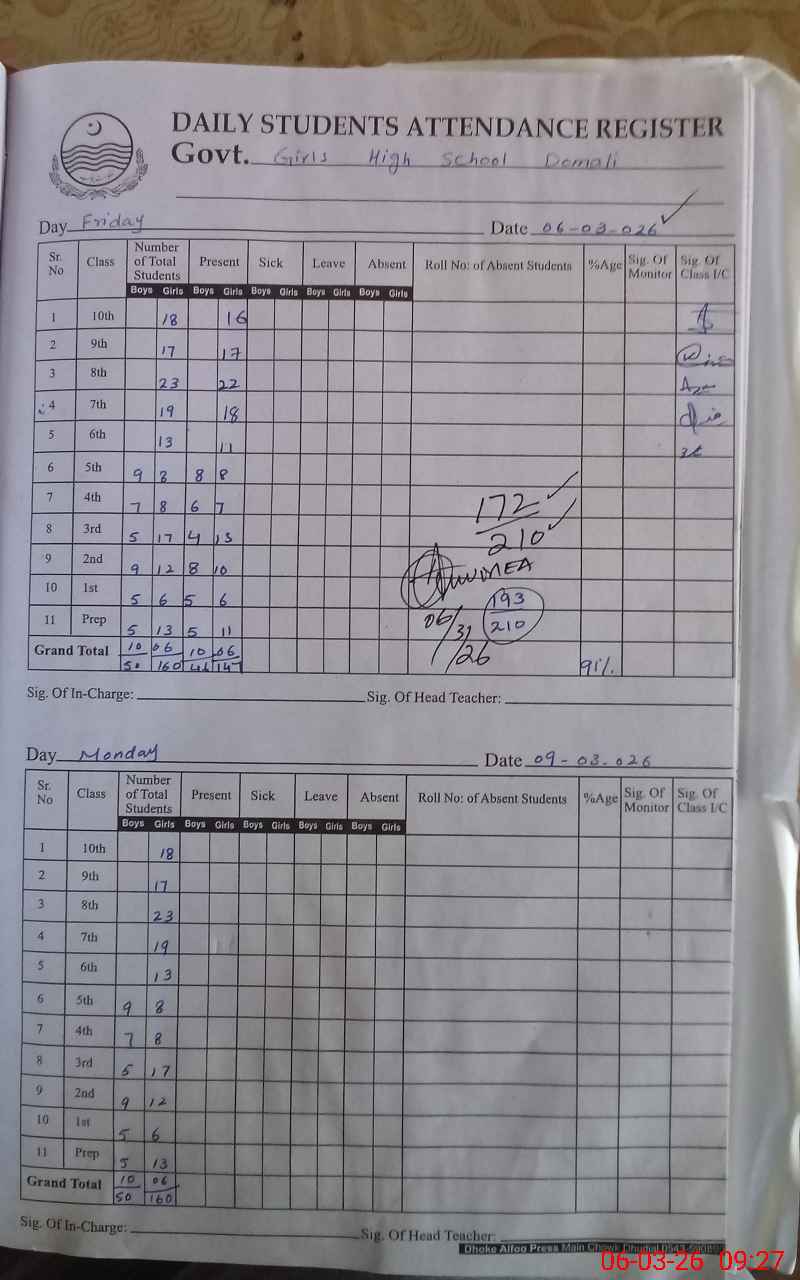 DAILY STUDENTS ATTENDANCE REGISTER
Govt. Girls High School Domali
Day Friday Date 06-03-026
Sr. No Class Number of Total Students Present Sick Leave Absent Roll No: of Absent Students %Age Sig. Of Monitor Sig. Of Class I/C
Boys Girls Boys Girls Boys Girls Boys Girls Boys Girls
1 10th 18 16
2 9th 17 17
3 8th 23 22
4 7th 19 18
5 6th 13 11
6 5th 9 8 8 8
7 4th 7 8 6 7
172
8 3rd 5 17 4 13
210
9 2nd 9 12 8 10
10 1st 5 6 5 6
193
11 Prep 5 13 5 11
210
06/3/26
Grand Total 10 06 10 06
50 160 46 147 91%
Sig. Of In-Charge: Sig. Of Head Teacher:
Day Monday Date 09-03.026
Sr. No Class Number of Total Students Present Sick Leave Absent Roll No: of Absent Students %Age Sig. Of Monitor Sig. Of Class I/C
Boys Girls Boys Girls Boys Girls Boys Girls Boys Girls
1 10th 18
2 9th 17
3 8th 23
4 7th 19
5 6th 13
6 5th 9 8
7 4th 7 8
8 3rd 5 17
9 2nd 9 12
10 1st 5 6
11 Prep 5 13
Grand Total 10 06
50 160
Sig. Of In-Charge: Sig. Of Head Teacher:
Dhoke Alfoo Press Main Chowk Dhudial
06-03-26 09:27